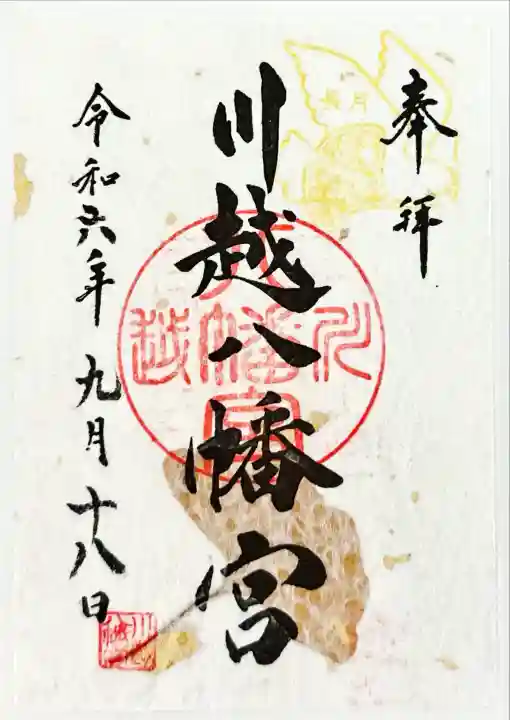 奉拝
川越八幡宮
令和六年九月十八日
川越八幡宮